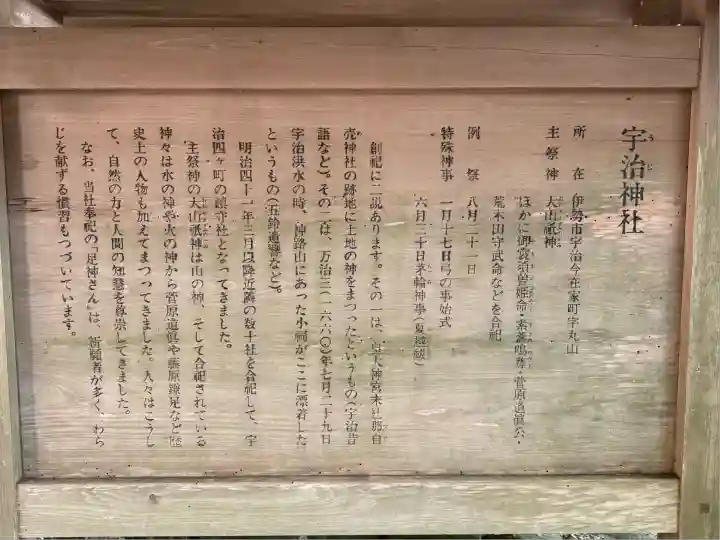 宇治神社
所在 伊勢市宇治今在家町字丸山
主祭神 大山祇神
ほかに御裳須曽姫命・素盞嗚尊・菅原道真公・
荒木田守武命などを合祀
例祭 八月二十一日
特殊神事 一月十七日弓の事始式
六月三十日茅輪神事(夏越祓)
創祀に二説あります。その一は、皇大神宮末社那自
売神社の跡地に土地の神をまつったというもの(宇治昔
語など)。その二は、万治三(一六六〇)年七月二十九日
宇治洪水の時、神路山にあった小祠がここに漂着した
というもの(五鈴遺響など)。
明治四十一年三月以降近隣の数十社を合祀して、宇
治四ヶ町の鎮守社となってきました。
主祭神の大山祇神は山の神、そして合祀されている
神々は水の神や火の神から菅原道真や藤原鎌足など歴
史上の人物も加えてまつってきました。人々はこうし
て、自然の力と人間の知慧を尊崇してきました。
なお、当社奉祀の「足神さん」は、祈願者が多く、わら
じを献ずる慣習もつづいています。